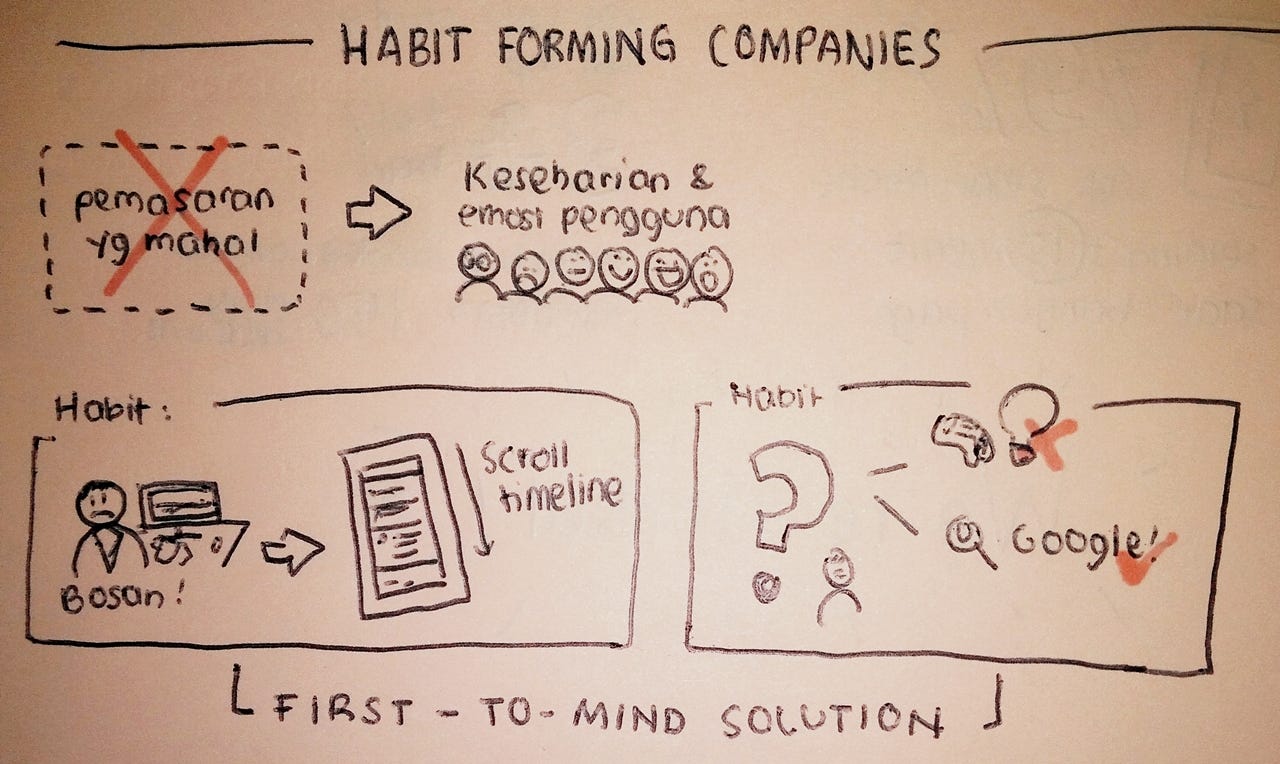 HABIT FORMING COMPANIES
pemasaran
yg mahal
Keseharian &
emosi pengguna
Habit :
Scroll
timeline
Bosan !
Habit
Google!
FIRST - TO - MIND SOLUTION